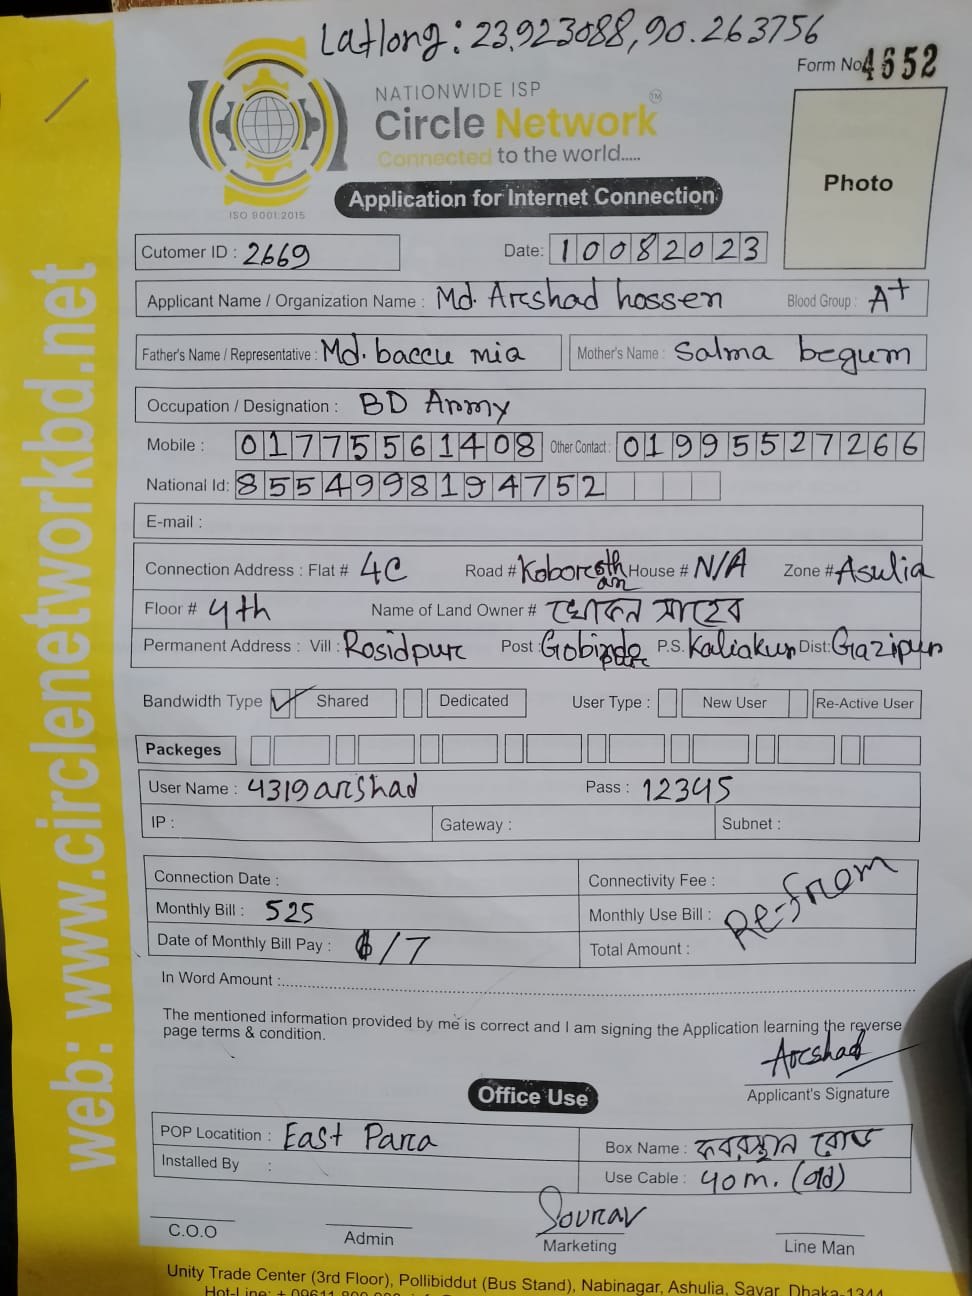 Latlong: 23.923088,90.263756
Form No 4652
NATIONWIDE ISP
Circle Network TM
Connected to the world.....
ISO 9001:2015
Application for Internet Connection
Photo
Cutomer ID : 2669 Date: 10082023
Applicant Name / Organization Name : Md. Arshad hossen Blood Group : A+
Father's Name / Representative : Md. baccu mia Mother's Name : Salma begum
Occupation / Designation : BD Army
Mobile : 01775561408 Other Contact : 01995527266
National Id: 8554998194752
E-mail :
Connection Address : Flat # 4C Road # Koboresthan House # N/A Zone # Asulia
Floor # 4th Name of Land Owner # খোকন সাহেব
Permanent Address : Vill : Rosidpur Post : Gobindopur P.S. Kaliakur Dist: Gazipur
Bandwidth Type Shared Dedicated User Type : New User Re-Active User
Packeges
User Name : 4319arshad Pass : 12345
IP : Gateway : Subnet :
Connection Date : Connectivity Fee :
Monthly Bill : 525 Monthly Use Bill : Re-from
Date of Monthly Bill Pay : /7 Total Amount :
In Word Amount :
The mentioned information provided by me is correct and I am signing the Application learning the reverse
page terms & condition.
Arshad
Applicant's Signature
Office Use
POP Locatition : East Para Box Name : কবরস্থান রোড
Installed By : Use Cable : 40m. (old)
Sourav
C.O.O Admin Marketing Line Man
Unity Trade Center (3rd Floor), Pollibiddut (Bus Stand), Nabinagar, Ashulia, Savar, Dhaka-1344
web: www.circlenetworkbd.net